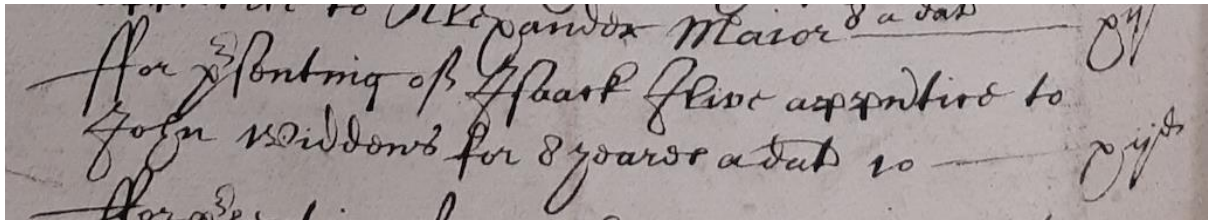 to Alexander Maior 8 a dat xij
ffor psenting of Isaack Clive apprntice to
John Widdows for 8 yeares a dat 10 xijd
ffor